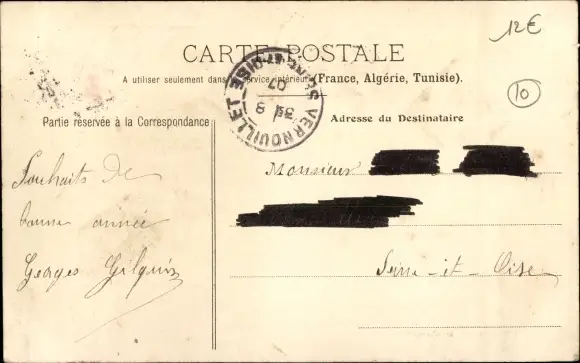 12€
CARTE POSTALE
A utiliser seulement dans service intérieur (France, Algérie, Tunisie).
10
VERNOUILLET
07
Partie réservée à la Correspondance
Adresse du Destinataire
Souhaits de
bonne année
Georges Gilquin
Monsieur
Seine-et-Oise